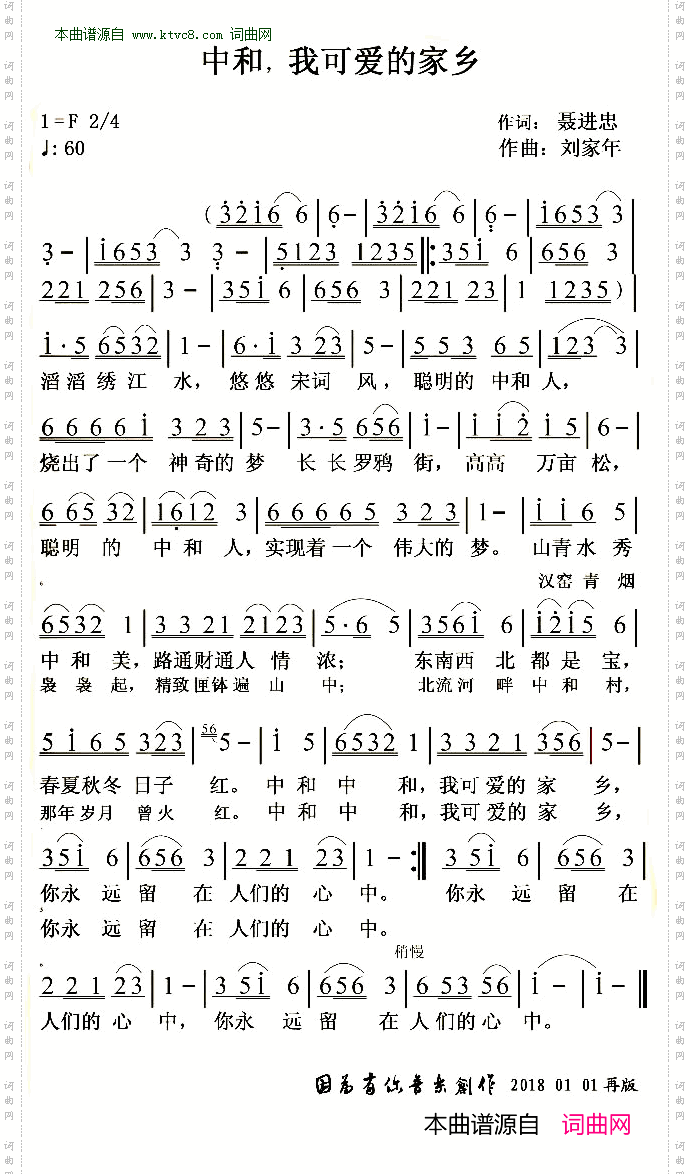 本曲谱源自 www.ktvc8.com 词曲网
中和，我可爱的家乡
1=F 2/4
作词：聂进忠
♩: 60
作曲：刘家年
(3216 6|6-|3216 6|6-|1653 3|
3-|1653 3 3-|5123 1235‖:351 6|656 3|
221 256|3-|351 6|656 3|221 23|1 1235)|
1·5 6532|1-|6·1 3 23|5-|553 65|123 3|
滔滔绣江水，悠悠宋词风，聪明的中和人，
66661 323|5-|3·5 656|1-|112 15|6-|
烧出了一个神奇的梦 长长罗鸦街，高高万亩松，
6 65 32|1612 3|66665 323|1-|116 5|
聪明的中和人，实现着一个伟大的梦。山青水秀
。 汉窑青烟
6532 1|3321 2123|5·6 5|3561 6|1215 6|
中和美，路通财通人情浓；东南西北都是宝，
袅袅起，精致匣钵遍山中；北流河畔中和村，
5165 323|56 5-|1 5|6532 1|3321 356|5-|
春夏秋冬日子红。中和中和，我可爱的家乡，
那年岁月曾火红。中和中和，我可爱的家乡，
351 6|656 3|221 23|1-:‖ 351 6|656 3|
你永远留在人们的心中。你永远留在
你永远留在人们的心中。
稍慢
221 23|1-|351 6|656 3|653 56|1-|1-‖
人们的心中，你永远留在人们的心中。
因为有你音乐创作 2018 01 01再版
本曲谱源自 词曲网